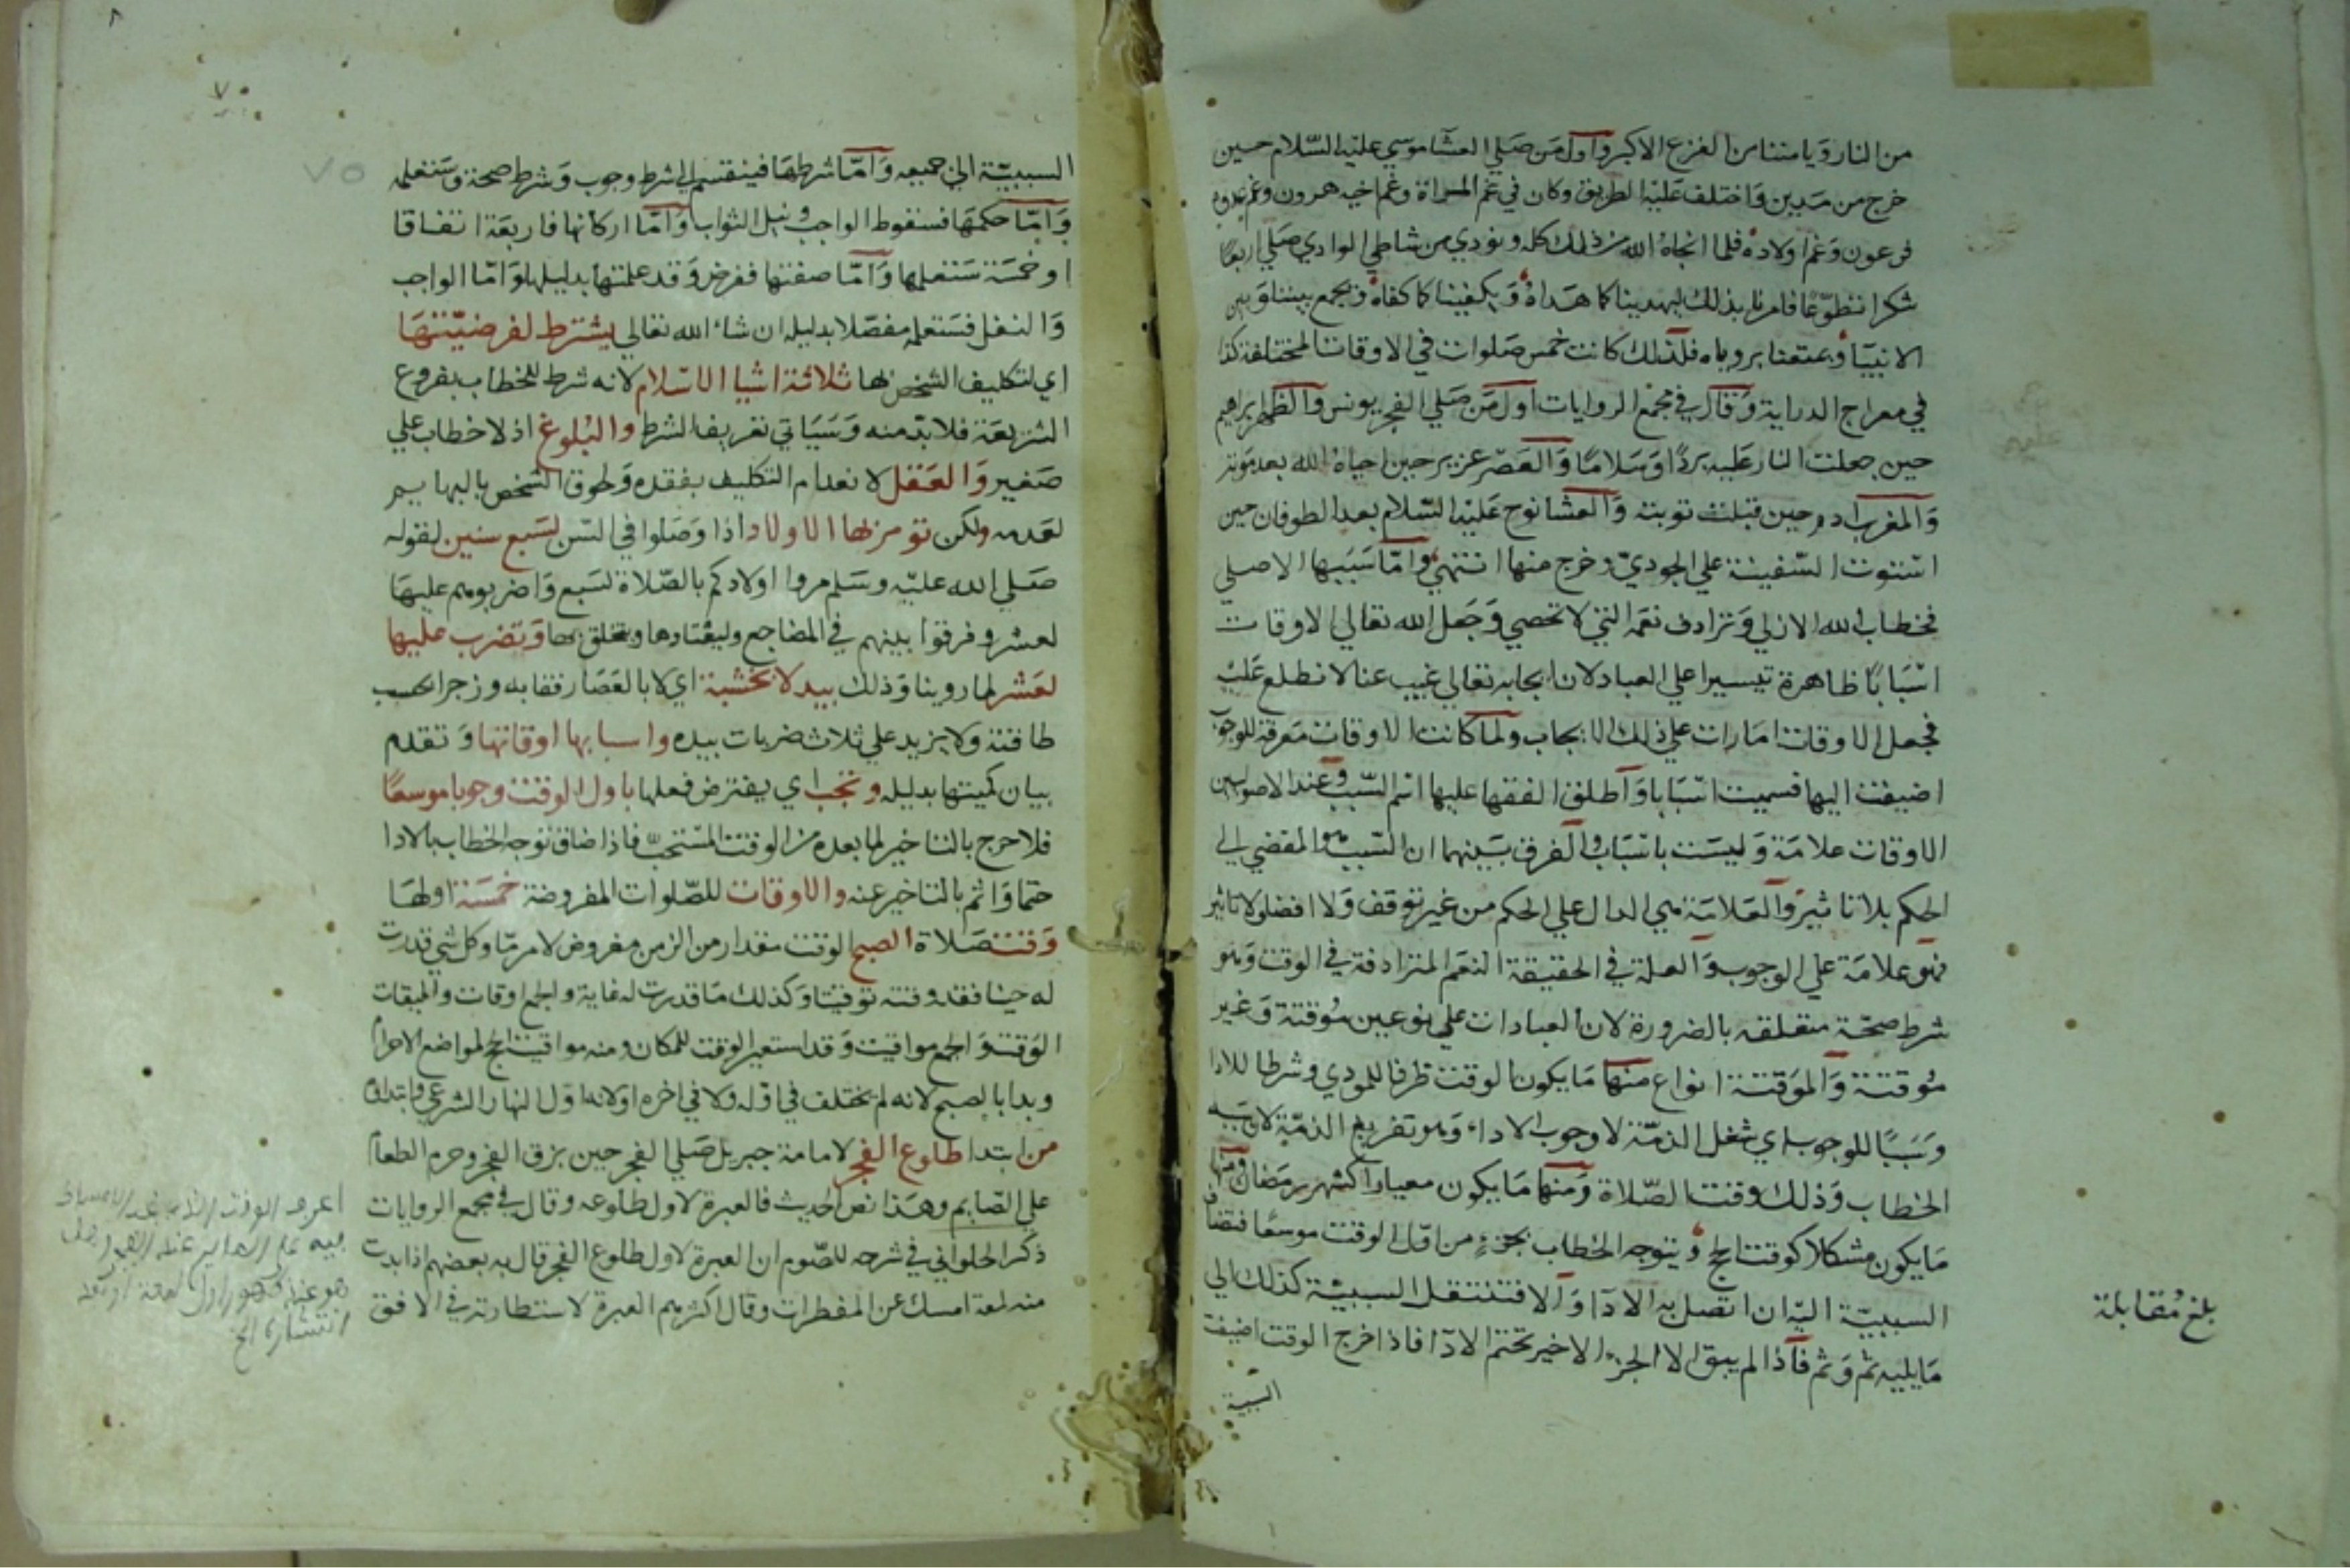 من النار ويامننا من الفزع الاكبر واول من صلي العشا موسي عليه السلام حين
خرج من مدين واختلف عليه الطريق وكان في غم المراة وغم اخيه هرون وغم عدوه
فرعون وغم اولاده فلما انجاه الله من ذلك كله ونودي من شاطي الوادي صلي اربعا
شكرا تطوعا فامرنا بذلك ليهدينا كما هداه ويكفينا كما كفاه ويجمع بيننا وبين
الانبيا ويمتعنا برؤياه فلذلك كانت خمس صلوات في الاوقات المختلفة كذا
في معراج الدراية وقال في مجمع الروايات اول من صلي الفجر يونس والظهر ابراهيم
حين جعلت النار عليه بردا وسلاما والعصر عزير حين احياه الله بعد موته
والمغرب داود حين قبلت توبته والعشا نوح عليه السلام بعد الطوفان حين
استوت السفينة علي الجودي وخرج منها انتهي واما سببها الاصلي
فخطاب الله الازلي وترادف نعمه التي لا تحصي وجعل الله تعالي الاوقات
اسبابا ظاهرة تيسيرا علي العباد لان ايجابه تعالي غيب عنا لا نطلع عليه
فجعل الاوقات امارات علي ذلك الايجاب ولما كانت الاوقات معرفة للوجوب
اضيفت اليها فسميت اسبابا واطلق الفقها عليها اسم السبب وعند الاصوليين
الاوقات علامة وليست باسباب والفرق بينهما ان السبب هو المفضي الي
الحكم بلا تاثير والعلامة هي الدال علي الحكم من غير توقف ولا افضا ولا تاثير
فهو علامة علي الوجوب والعلة في الحقيقة النعم المترادفة في الوقت وهو
شرط صحة متعلقه بالضرورة لان العبادات علي نوعين موقتة وغير
موقتة والموقتة انواع منها ما يكون الوقت ظرفا للمودي وشرطا للادا
وسببا للوجوب اي شغل الذمة لا وجوب الاداء وهو تفريغ الذمة لان سببه
الخطاب وذلك وقت الصلاة ومنها ما يكون معيارا كشهر رمضان ومنها
ما يكون مشكلا كوقت الحج ويتوجه الخطاب بجزء من اول الوقت موسعا فتضاف
السببية اليه ان اتصل به الادا والا فتنتقل السببية كذلك الي
ما يليه ثم وثم فاذا لم يبق الا الجزء الاخير تحتم الادا فاذا خرج الوقت اضيفت
السببية
بلغ مقابلة
٧٠
٧٥
السببية الي جميعه واما شرطها فينقسم الي شرط وجوب وشرط صحة وستعلمه
واما حكمها فسقوط الواجب ونيل الثواب واما اركانها فاربعة اتفاقا
او خمسة ستعلمها واما صفتها ففرض وقد علمتها بدليلها واما الواجب
والنفل فستعلمه مفصلا بدليله ان شاء الله تعالي يشترط لفرضيتها
اي لتكليف الشخص بها ثلاثة اشيا الاسلام لانه شرط للخطاب بفروع
الشريعة فلا بد منه وسياتي تعريف الشرط والبلوغ اذ لا خطاب علي
صغير والعقل لانعدام التكليف بفقده ولحوق الشخص بالبهايم
لعدمه ولكن تومر بها الاولاد اذا وصلوا في السن لسبع سنين لقوله
صلي الله عليه وسلم مروا اولادكم بالصلاة لسبع واضربوهم عليها
لعشر وفرقوا بينهم في المضاجع وليعتادها ويتخلق بها وتضرب عليها
لعشر لما روينا وذلك بيد لا بخشبة اي لا بالعصا رفقا به وزجرا بحسب
طاقته ولا يزيد علي ثلاث ضربات بيده واسبابها اوقاتها وتقدم
بيان كميتها بدليله وتجب اي يفترض فعلها باول الوقت وجوبا موسعا
فلا حرج بالتاخير لما بعده من الوقت المستحب فاذا ضاق توجه الخطاب بالادا
حتما واثم بالتاخير عنه والاوقات للصلوات المفروضة خمسة اولها
وقت صلاة الصبح الوقت مقدار من الزمن مفروض لامر ما وكل شي قدرت
له حينا فقد وقته توقيتا وكذلك ما قدرت له غاية والجمع اوقات والميقات
الوقت والجمع مواقيت وقد استعير الوقت للمكان ومنه مواقيت الحج لمواضع الاحرام
وبدا بالصبح لانه لم يختلف في اوله ولا في اخره اولانه اول النهار الشرعي وابتداؤه
من ابتدا طلوع الفجر لامامة جبريل صلي الفجر حين بزق الفجر وحرم الطعام
علي الصايم وهذا نص الحديث فالعبرة لاول طلوعه وقال في مجمع الروايات
ذكر الحلواني في شرحه للصوم ان العبرة لاول طلوع الفجر قال به بعضهم اذا بدت
منه لمعة امسك عن المفطرات وقال اكثرهم العبرة لاستطارته في الافق
انتشاره الخ